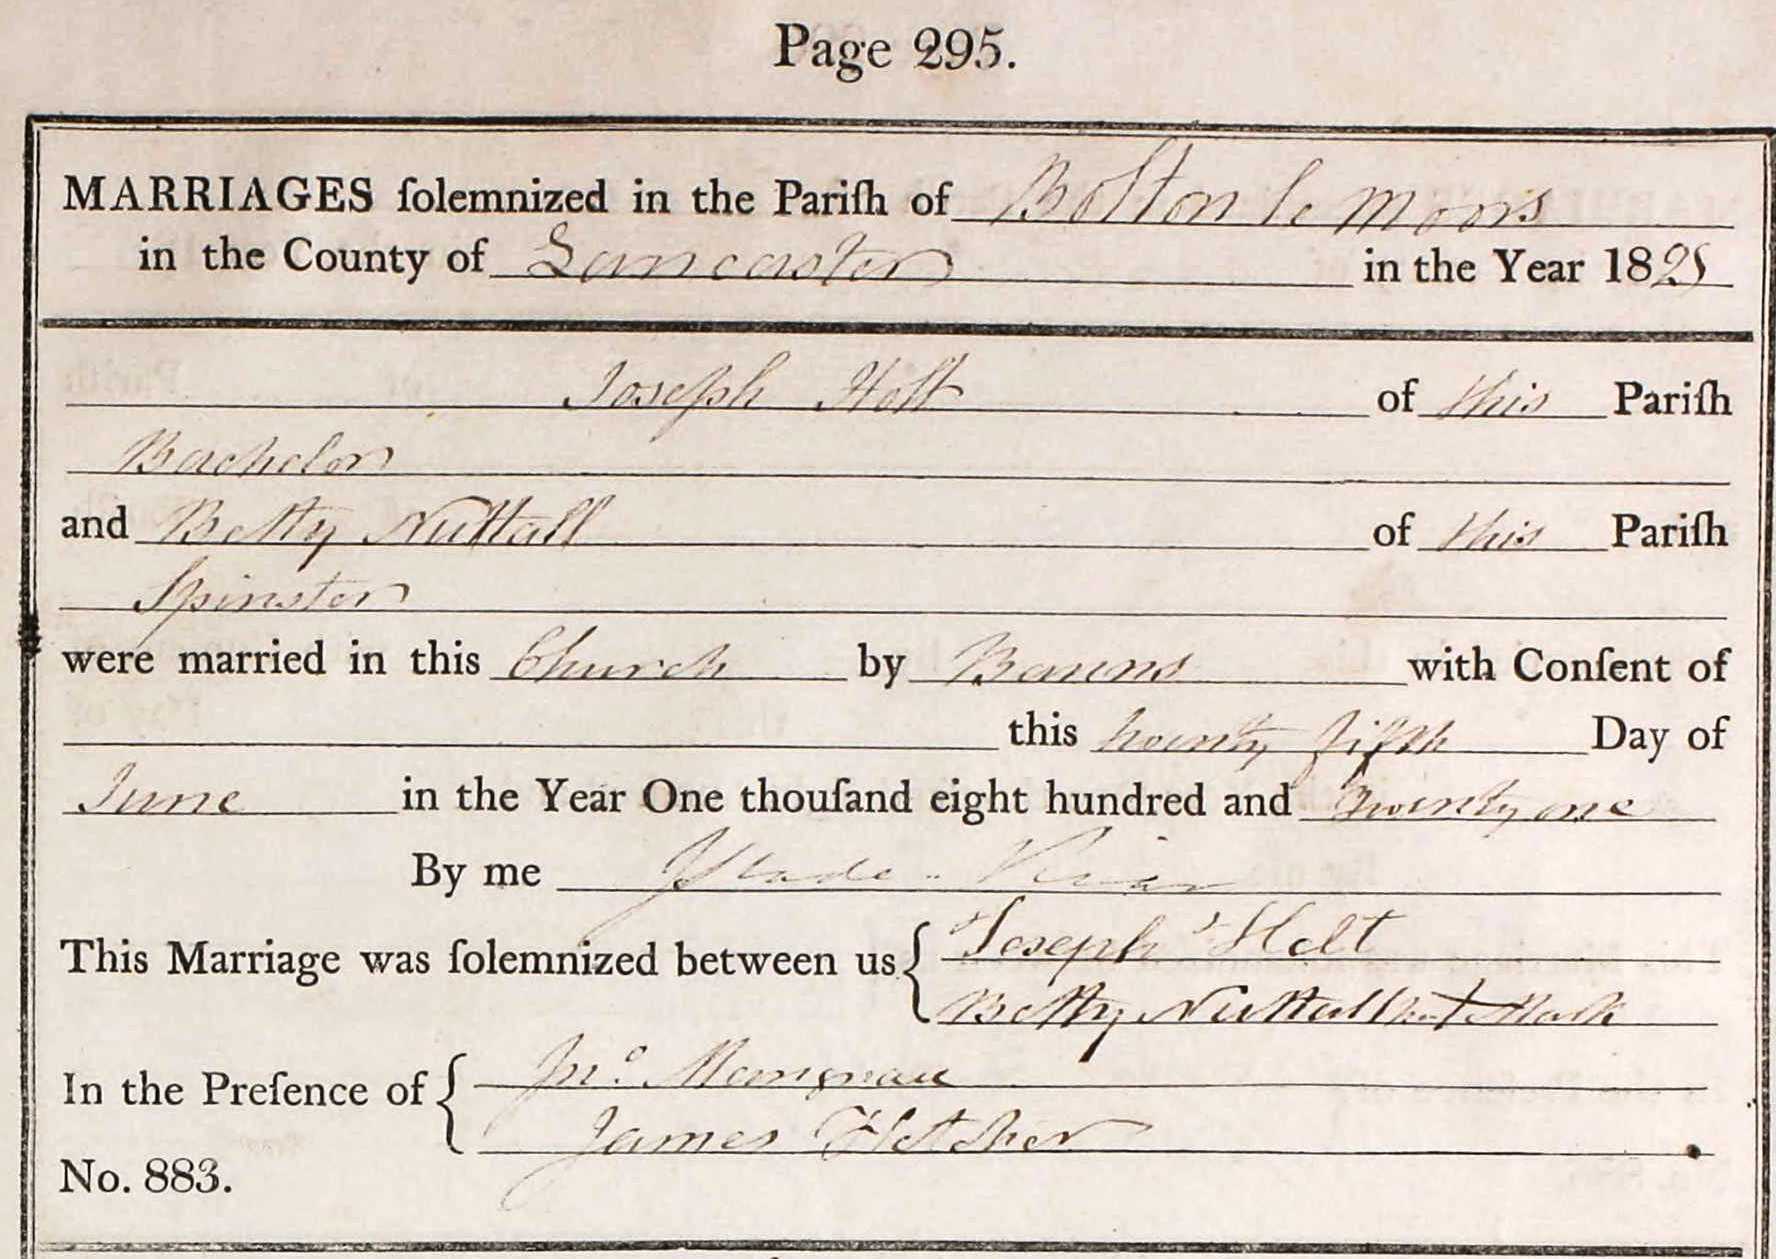 Page 295.
MARRIAGES ſolemnized in the Pariſh of Bolton le Moors
in the County of Lancaster in the Year 1821
Joseph Holt of this Pariſh
Bachelor
and Betty Nuttall of this Pariſh
Spinster
were married in this Church by Banns with Conſent of
this twenty fifth Day of
June in the Year One thouſand eight hundred and twenty one
By me Slade Vicar
This Marriage was ſolemnized between us { Joseph Holt
Betty Nuttall her + Mark
In the Preſence of { Jno.
James Fletcher
No. 883.